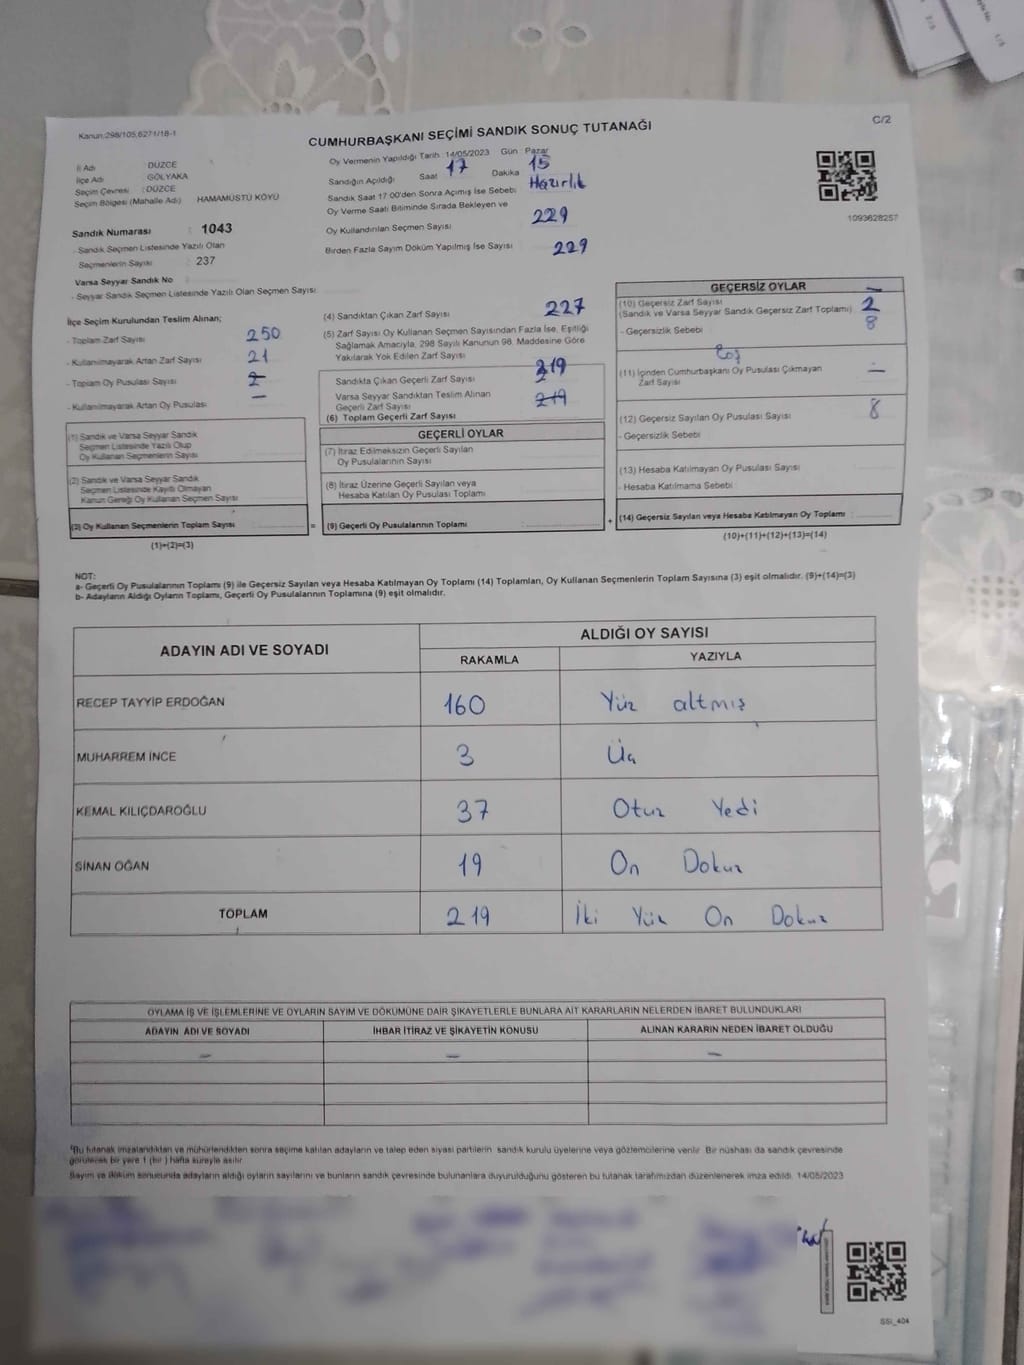 Kanun:298/105,6271/18-1
C/2
CUMHURBAŞKANI SEÇİMİ SANDIK SONUÇ TUTANAĞI
İl Adı : DÜZCE
İlçe Adı : GÖLYAKA
Seçim Çevresi : DÜZCE
Seçim Bölgesi (Mahalle Adı) HAMAMÜSTÜ KÖYÜ
Sandık Numarası : 1043
- Sandık Seçmen Listesinde Yazılı Olan
Seçmenlerin Sayısı : 237
Varsa Seyyar Sandık No
- Seyyar Sandık Seçmen Listesinde Yazılı Olan Seçmen Sayısı:
Oy Vermenin Yapıldığı Tarih :14/05/2023 Gün : Pazar
Sandığın Açıldığı Saat 17 Dakika 15
Sandık Saat 17:00'den Sonra Açımış İse Sebebi Hazırlık
Oy Verme Saati Bitiminde Sırada Bekleyen ve
Oy Kullandırılan Seçmen Sayısı 229
Birden Fazla Sayım Döküm Yapılmış İse Sayısı 229
1093628257
İlçe Seçim Kurulundan Teslim Alınan;
- Toplam Zarf Sayısı 250
- Kullanılmayarak Artan Zarf Sayısı 21
- Toplam Oy Pusulası Sayısı
- Kullanılmayarak Artan Oy Pusulası —
(1) Sandık ve Varsa Seyyar Sandık
Seçmen Listesinde Yazılı Olup
Oy Kullanan Seçmenlerin Sayısı
(2) Sandık ve Varsa Seyyar Sandık
Seçmen Listesinde Kayıtlı Olmayan
Kanun Gereği Oy Kullanan Seçmen Sayısı
(3) Oy Kullanan Seçmenlerin Toplam Sayısı
=
(1)+(2)=(3)
(4) Sandıktan Çıkan Zarf Sayısı 227
(5) Zarf Sayısı Oy Kullanan Seçmen Sayısından Fazla İse, Eşitliği
Sağlamak Amacıyla, 298 Sayılı Kanunun 98. Maddesine Göre
Yakılarak Yok Edilen Zarf Sayısı
Sandıkta Çıkan Geçerli Zarf Sayısı 219
Varsa Seyyar Sandıktan Teslim Alınan 219
Geçerli Zarf Sayısı
(6) Toplam Geçerli Zarf Sayısı
GEÇERLİ OYLAR
(7) İtiraz Edilmeksizin Geçerli Sayılan
Oy Pusulalarının Sayısı
(8) İtiraz Üzerine Geçerli Sayılan veya
Hesaba Katılan Oy Pusulası Toplamı
(9) Geçerli Oy Pusulalarının Toplamı
+
GEÇERSİZ OYLAR
—
(10) Geçersiz Zarf Sayısı
(Sandık ve Varsa Seyyar Sandık Geçersiz Zarf Toplamı) 2
- Geçersizlik Sebebi 8
Boş
(11) İçinden Cumhurbaşkanı Oy Pusulası Çıkmayan —
Zarf Sayısı
(12) Geçersiz Sayılan Oy Pusulası Sayısı 8
- Geçersizlik Sebebi
(13) Hesaba Katılmayan Oy Pusulası Sayısı
- Hesaba Katılmama Sebebi :
(14) Geçersiz Sayılan veya Hesaba Katılmayan Oy Toplamı :
(10)+(11)+(12)+(13)=(14)
NOT:
a- Geçerli Oy Pusulalarının Toplamı (9) ile Geçersiz Sayılan veya Hesaba Katılmayan Oy Toplamı (14) Toplamları, Oy Kullanan Seçmenlerin Toplam Sayısına (3) eşit olmalıdır. (9)+(14)=(3)
b- Adayların Aldığı Oyların Toplamı, Geçerli Oy Pusulalarının Toplamına (9) eşit olmalıdır.
ADAYIN ADI VE SOYADI
ALDIĞI OY SAYISI
RAKAMLA YAZIYLA
RECEP TAYYİP ERDOĞAN 160 Yüz altmış
MUHARREM İNCE 3 Üç
KEMAL KILIÇDAROĞLU 37 Otuz Yedi
SİNAN OĞAN 19 On Dokuz
TOPLAM 219 İki Yüz On Dokuz
OYLAMA İŞ VE İŞLEMLERİNE VE OYLARIN SAYIM VE DÖKÜMÜNE DAİR ŞİKAYETLERLE BUNLARA AİT KARARLARIN NELERDEN İBARET BULUNDUKLARI
ADAYIN ADI VE SOYADI İHBAR İTİRAZ VE ŞİKAYETİN KONUSU ALINAN KARARIN NEDEN İBARET OLDUĞU
— — —
Bu tutanak imzalandıktan ve mühürlendikten sonra seçime katılan adayların ve talep eden siyasi partilerin sandık kurulu üyelerine veya gözlemcilerine verilir. Bir nüshası da sandık çevresinde
görülecek bir yere 1 (bir ) hafta süreyle asılır.
Sayım ve döküm sonucunda adayların aldığı oyların sayılarını ve bunların sandık çevresinde bulunanlara duyurulduğunu gösteren bu tutanak tarafımızdan düzenlenerek imza edildi. 14/05/2023
SSI_404